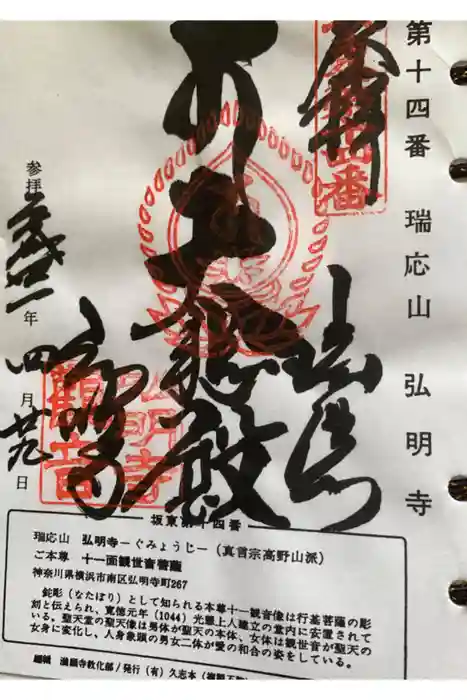 第十四番 瑞応山 弘明寺
奉拝
瑞應山
大悲殿
弘明寺
弘明寺
観音
参拝 年 四月廿九日
坂東第十四番
瑞応山 弘明寺－ぐみょうじ－(真言宗高野山派)
ご本尊 十一面観世音菩薩
神奈川県横浜市南区弘明寺町267
鉈彫(なたぼり)として知られる本尊十一観音像は行基菩薩の彫
刻と伝えられ、寛徳元年(1044)光慧上人建立の堂内に安置されて
いる。聖天堂の聖天像は男体が聖天の本体、女体は観世音が聖天の
女身に変化し、人身象頭の男女二体が愛の和合の姿をしている。
編輯 満願寺教化部/発行(有)久志本